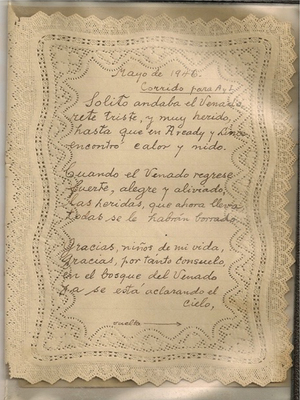 Mayo de 1946.
Corrido para A y L
Solito andaba el Venado
rete triste, y muy herido,
hasta que en Aready y Lina
encontró calor y nido.
Cuando el Venado regrese
fuerte, alegre y aliviado,
las heridas, que ahora lleva
todas se le habrán borrado
Gracias, niños de mi vida,
Gracias, por tanto consuelo,
en el bosque del Venado
ya se está aclarando el
cielo,
vuelta